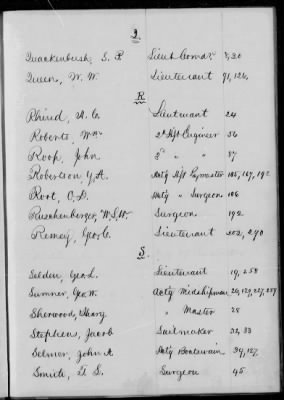 Q.
Quackenbush, S. P. Lieut Comdr. 8, 30
Queen, W. W. Lieutenant 91, 126
R.
Rhind, A. C. Lieutenant 24
Roberts, Wm 2d Asst Engineer 36
Roop, John 3d " " 37
Robertson, Y. A. Actg Asst Paymaster 165, 167, 192
Root, O. D. Actg " Surgeon 186
Ruschenberger, W. S. W. Surgeon 192
Remey, Geo. C. Lieutenant 202, 290
S.
Selden, Geo. L. Lieutenant 19, 258
Sumner, Geo. W. Actg Midshipman 20, 129, 227, 257
Sherwood, Harry " Master 28
Stephens, Jacob Sailmaker 32, 33
Selmer, John A Actg Boatswain 34, 127
Smith, F. S. Surgeon 45